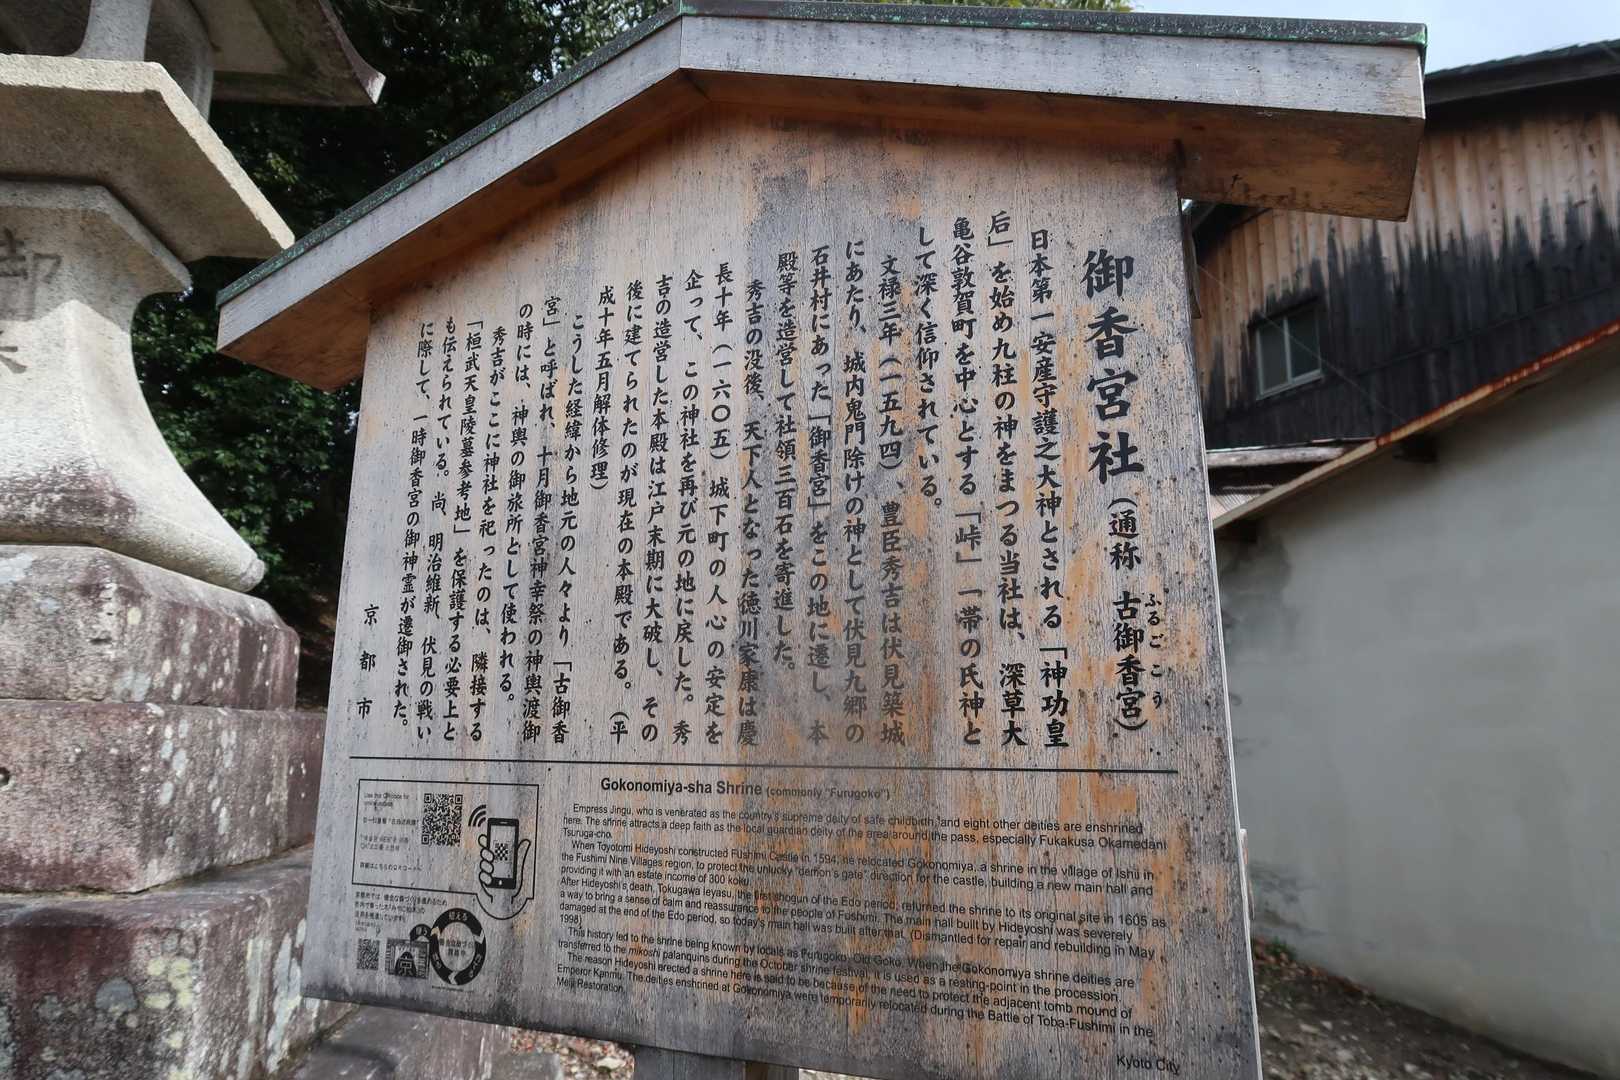 御香宮社（通称　古御香宮）
ふるごこう
日本第一安産守護之大神とされる「神功皇
后」を始め九柱の神をまつる当社は、深草大
亀谷敦賀町を中心とする「峠」一帯の氏神と
して深く信仰されている。
文禄三年（一五九四）、豊臣秀吉は伏見築城
にあたり、城内鬼門除けの神として伏見九郷の
石井村にあった「御香宮」をこの地に遷し、本
殿等を造営して社領三百石を寄進した。
秀吉の没後、天下人となった徳川家康は慶
長十年（一六〇五）城下町の人心の安定を
企って、この神社を再び元の地に戻した。秀
吉の造営した本殿は江戸末期に大破し、その
後に建てられたのが現在の本殿である。（平
成十年五月解体修理）
こうした経緯から地元の人々より「古御香
宮」と呼ばれ、十月御香宮神幸祭の神輿渡御
の時には、神輿の御旅所として使われる。
秀吉がここに神社を祀ったのは、隣接する
「桓武天皇陵墓参考地」を保護する必要上と
も伝えられている。尚、明治維新、伏見の戦い
に際して、一時御香宮の御神霊が遷御された。
京都市
Gokonomiya-sha Shrine (commonly "Furugoko")
Empress Jingu, who is venerated as the country's supreme deity of safe childbirth, and eight other deities are enshrined
here. The shrine attracts a deep faith as the local guardian deity of the area around the pass, especially Fukakusa Okamedani
Tsuruga-cho.
When Toyotomi Hideyoshi constructed Fushimi Castle in 1594, he relocated Gokonomiya, a shrine in the village of Ishii in
the Fushimi Nine Villages region, to protect the unlucky "demon's gate" direction for the castle, building a new main hall and
providing it with an estate income of 300 koku.
After Hideyoshi's death, Tokugawa Ieyasu, the first shogun of the Edo period, returned the shrine to its original site in 1605 as
a way to bring a sense of calm and reassurance to the people of Fushimi. The main hall built by Hideyoshi was severely
damaged at the end of the Edo period, so today's main hall was built after that. (Dismantled for repair and rebuilding in May
1998)
This history led to the shrine being known by locals as Furugoko, Old Goko. When the Gokonomiya shrine deities are
transferred to the mikoshi palanquins during the October shrine festival, it is used as a resting-point in the procession.
The reason Hideyoshi erected a shrine here is said to be because of the need to protect the adjacent tomb mound of
Emperor Kanmu. The deities enshrined at Gokonomiya were temporarily relocated during the Battle of Toba-Fushimi in the
Meiji Restoration.
Kyoto City
京
御